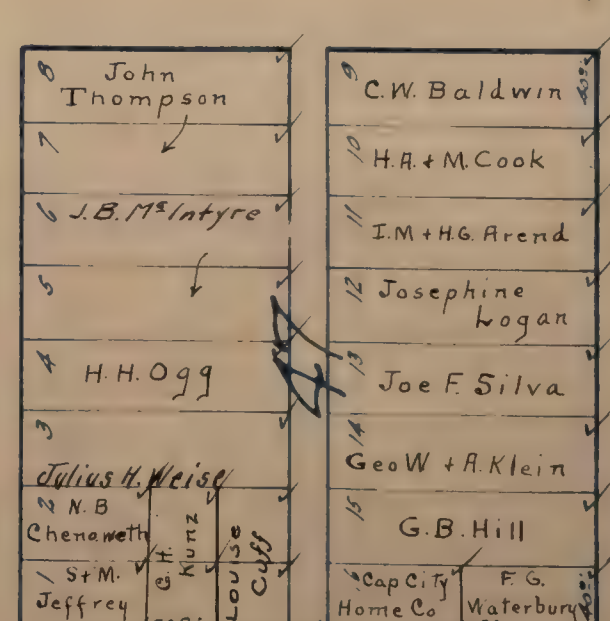 8
John
Thompson
7
6
J.B. McIntyre
5
4
H. H. Ogg
3
Julius H. Weise
2
N. B
Chenoweth
1
S + M.
Jeffrey
G. H.
Kunz
Louise
Cuff
47
9
C. W. Baldwin
10
H. A. + M. Cook
11
I. M + H.G. Arend
12
Josephine
Logan
13
Joe F. Silva
14
Geo W + A. Klein
15
G. B. Hill
Cap City
Home Co
F. G.
Waterbury